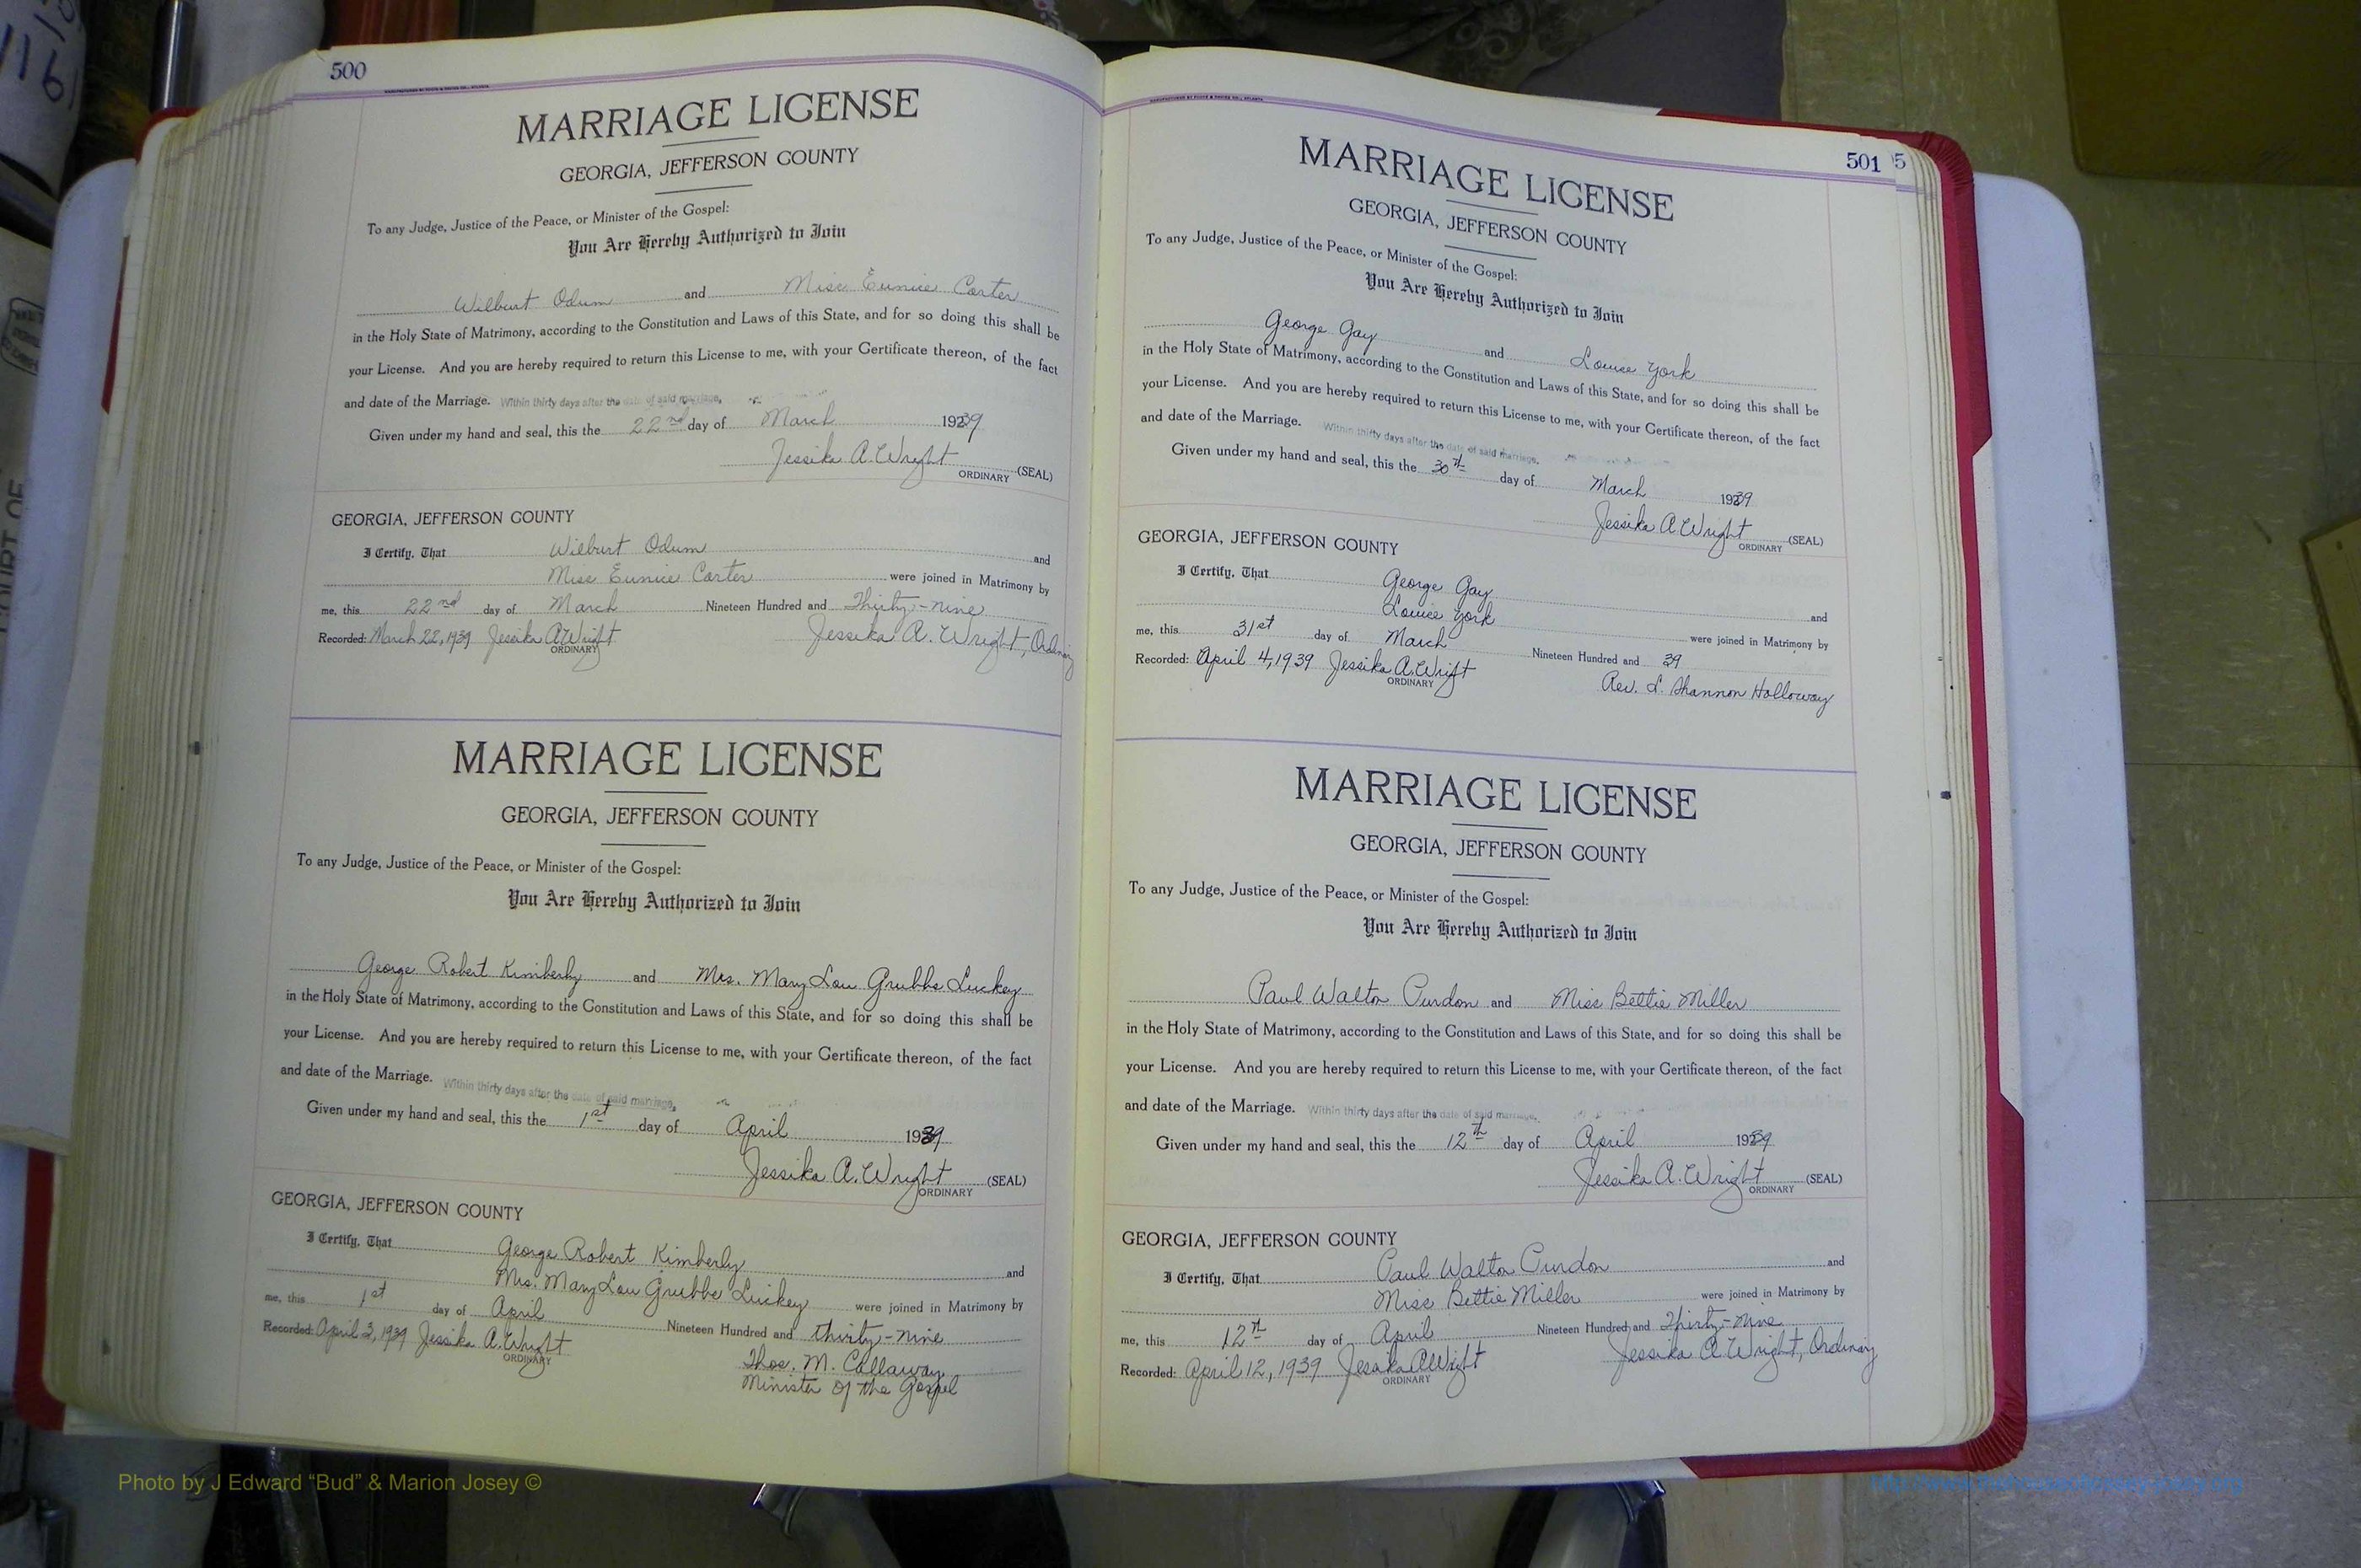 500
MARRIAGE LICENSE
GEORGIA, JEFFERSON COUNTY
To any Judge, Justice of the Peace, or Minister of the Gospel:
You Are Hereby Authorized to Join
Wilburt Odum and Miss Eunice Carter
in the Holy State of Matrimony, according to the Constitution and Laws of this State, and for so doing this shall be
your License. And you are hereby required to return this License to me, with your Certificate thereon, of the fact
and date of the Marriage. Within thirty days after the date of said marriage,
Given under my hand and seal, this the 22nd day of March 1939
Jessika A. Wright (SEAL)
ORDINARY
GEORGIA, JEFFERSON COUNTY
I Certify, That Wilburt Odum and
Miss Eunice Carter were joined in Matrimony by
me, this 22nd day of March Nineteen Hundred and Thirty-nine
Recorded: March 22, 1939 Jessika A. Wright Jessika A. Wright, Ordinary
ORDINARY
MARRIAGE LICENSE
GEORGIA, JEFFERSON COUNTY
To any Judge, Justice of the Peace, or Minister of the Gospel:
You Are Hereby Authorized to Join
George Robert Kimberly and Mrs. Mary Lou Grubbs Luckey
in the Holy State of Matrimony, according to the Constitution and Laws of this State, and for so doing this shall be
your License. And you are hereby required to return this License to me, with your Certificate thereon, of the fact
and date of the Marriage. Within thirty days after the date of said marriage,
Given under my hand and seal, this the 1st day of April 1939
Jessika A. Wright (SEAL)
ORDINARY
GEORGIA, JEFFERSON COUNTY
I Certify, That George Robert Kimberly and
Mrs. Mary Lou Grubbs Luckey were joined in Matrimony by
me, this 1st day of April Nineteen Hundred and thirty-nine
Recorded: April 3, 1939 Jessika A. Wright
ORDINARY
Thos. M. Callaway
Minister of the Gospel
501
MARRIAGE LICENSE
GEORGIA, JEFFERSON COUNTY
To any Judge, Justice of the Peace, or Minister of the Gospel:
You Are Hereby Authorized to Join
George Gay and Louise York
in the Holy State of Matrimony, according to the Constitution and Laws of this State, and for so doing this shall be
your License. And you are hereby required to return this License to me, with your Certificate thereon, of the fact
and date of the Marriage. Within thirty days after the date of said marriage,
Given under my hand and seal, this the 30th day of March 1939
Jessika A. Wright (SEAL)
ORDINARY
GEORGIA, JEFFERSON COUNTY
I Certify, That George Gay and
Louise York were joined in Matrimony by
me, this 31st day of March Nineteen Hundred and 39
Recorded: April 4, 1939 Jessika A. Wright Rev. L. Shannon Holloway
ORDINARY
MARRIAGE LICENSE
GEORGIA, JEFFERSON COUNTY
To any Judge, Justice of the Peace, or Minister of the Gospel:
You Are Hereby Authorized to Join
Paul Walton Purdon and Miss Bettie Miller
in the Holy State of Matrimony, according to the Constitution and Laws of this State, and for so doing this shall be
your License. And you are hereby required to return this License to me, with your Certificate thereon, of the fact
and date of the Marriage. Within thirty days after the date of said marriage,
Given under my hand and seal, this the 12th day of April 1939
Jessika A. Wright (SEAL)
ORDINARY
GEORGIA, JEFFERSON COUNTY
I Certify, That Paul Walton Purdon and
Miss Bettie Miller were joined in Matrimony by
me, this 12th day of April Nineteen Hundred and Thirty-nine
Recorded: April 12, 1939 Jessika A. Wright Jessika A. Wright, Ordinary
ORDINARY
Photo by J Edward “Bud” & Marion Josey ©